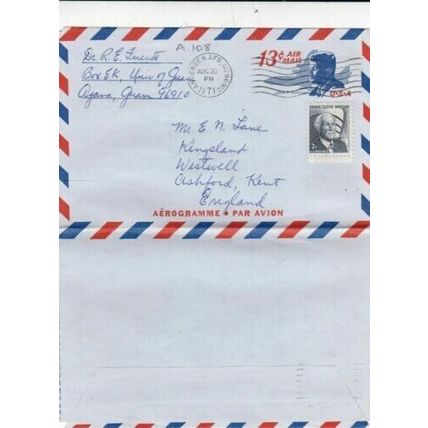 A.108
Dr. R. E.
Box EK, Univ of Guam
Agana, Guam 96910
AUG 30
PM
1971
13¢ AIR MAIL
U.S.A
FRANK LLOYD WRIGHT
2¢
Mr. E. N. Lane
Kingsland
Westwell
Ashford, Kent
England.
AÉROGRAMME • PAR AVION